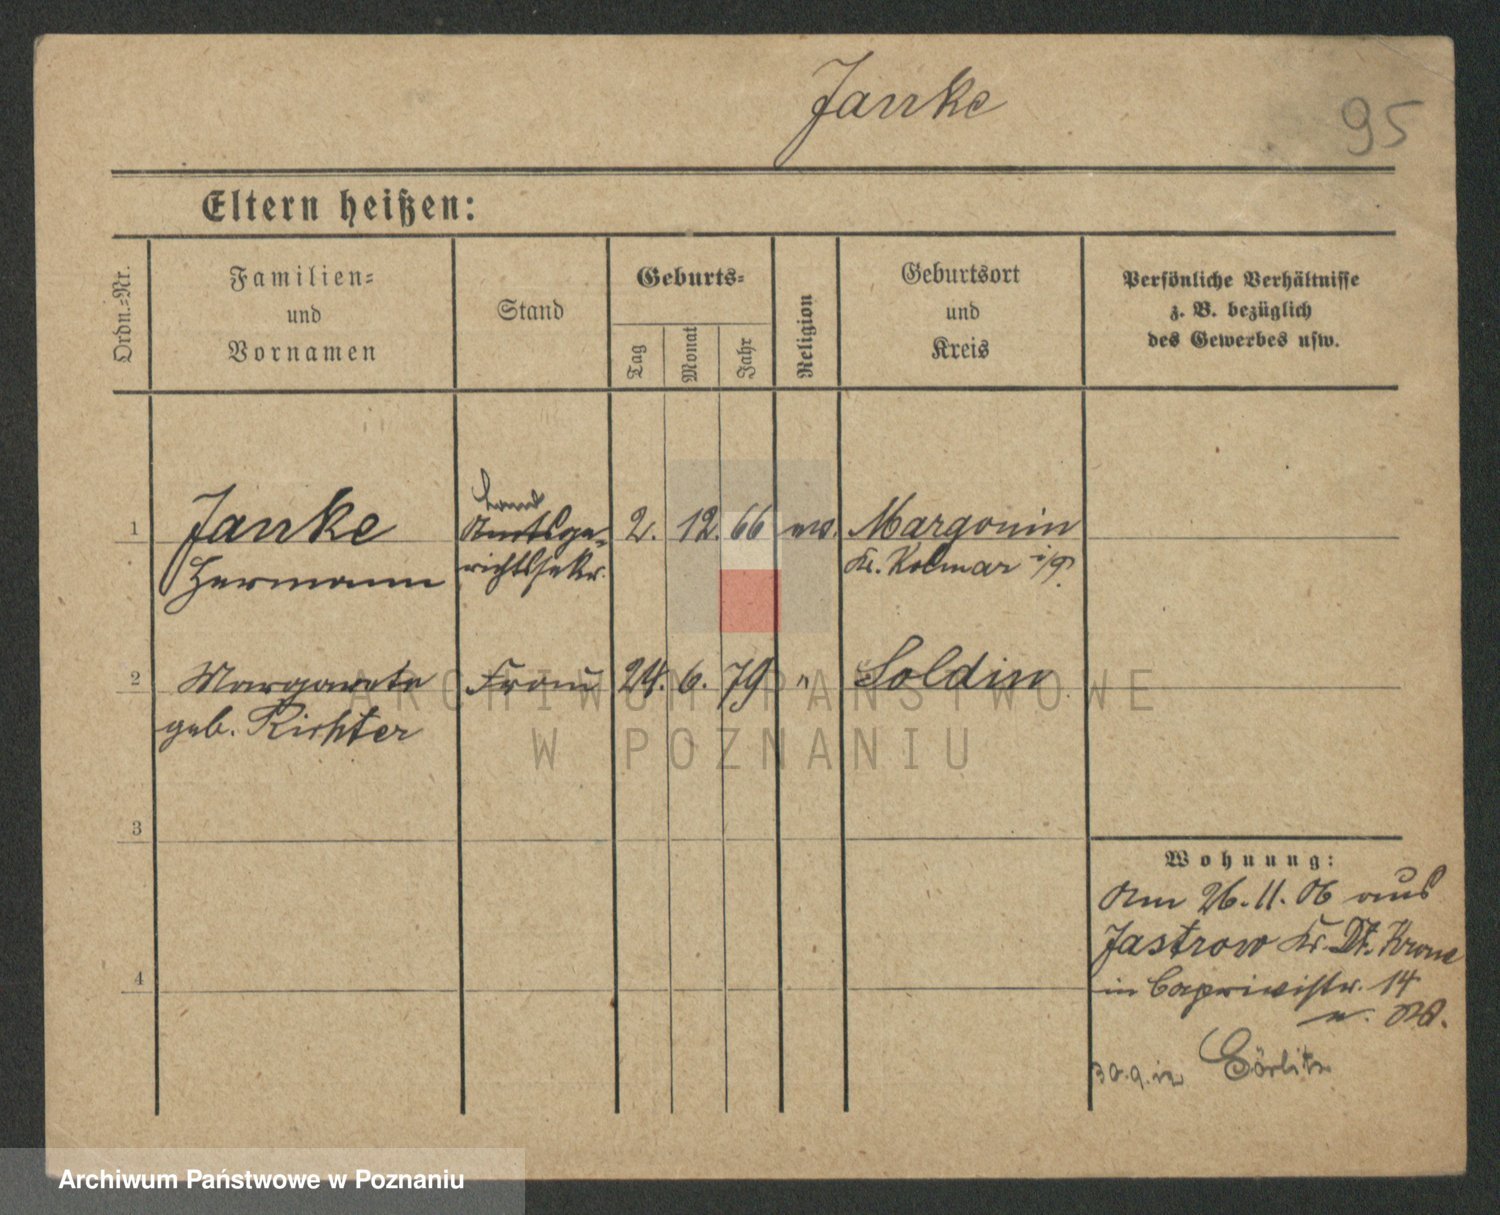 Janke
95
Eltern heißen:
Ordn.-Nr.
Familien-
und
Vornamen
Stand
Geburts-
Tag
Monat
Jahr
Religion
Geburtsort
und
Kreis
Persönliche Verhältnisse
z. B. bezüglich
des Gewerbes usw.
Land
1 Janke Amtsge- 2. 12. 66 ev. Margonin
Hermann richtssekr. Kr. Kolmar i/P.
2 Margarete Frau 24. 6. 79 " Soldin
geb. Richter
ARCHIWUM PAŃSTWOWE
W POZNANIU
3
Wohnung:
Am 26.11.06 aus
Jastrow Kr. Dt. Krone
4
in Caprivistr. 14
30.9.12 Görlitz
Archiwum Państwowe w Poznaniu